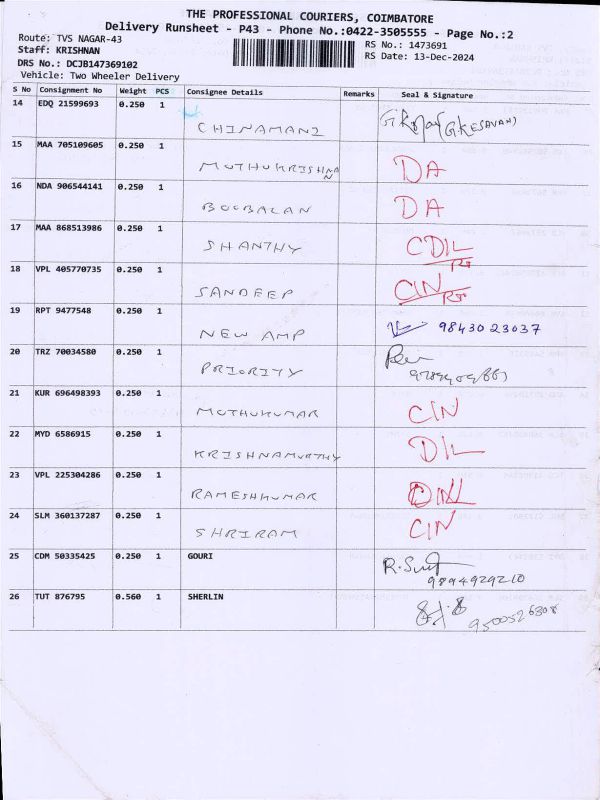 THE PROFESSIONAL COURIERS, COIMBATORE
Delivery Runsheet - P43 - Phone No.:0422-3505555 - Page No.:2
Route: TVS NAGAR-43 RS No.: 1473691
Staff: KRISHNAN RS Date: 13-Dec-2024
DRS No.: DCJB147369102
Vehicle: Two Wheeler Delivery
S No Consignment No Weight PCS Consignee Details Remarks Seal & Signature
14 EDQ 21599693 0.250 1
CHINAMANI (G.KESAVAN)
15 MAA 705109605 0.250 1
MUTHUKRISHNAN DA
16 NDA 906544141 0.250 1
BOOBALAN DA
17 MAA 868513986 0.250 1
SHANTHY CDIL
18 VPL 405770735 0.250 1
SANDEEP CIN
19 RPT 9477548 0.250 1
NEW AMP 98430 23037
20 TRZ 70034580 0.250 1
PRIORITY
21 KUR 696498393 0.250 1
MUTHUKUMAR CIN
22 MYD 6586915 0.250 1
KRISHNAMURTHY DIL
23 VPL 225304286 0.250 1
RAMESHKUMAR
24 SLM 360137287 0.250 1
SHRIRAM CIN
25 CDM 50335425 0.250 1 GOURI
9894929210
26 TUT 876795 0.560 1 SHERLIN
9500526308